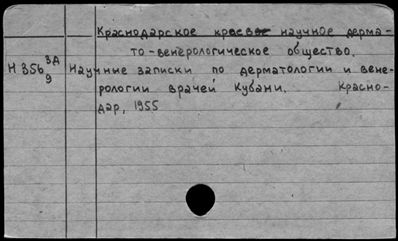 Краснодарское краевое научное дерма-
то-венерологическое общество.
Н 356 3д/9 Научные записки по дерматологии и вене-
рологии врачей Кубани. Красно-
дар, 1955